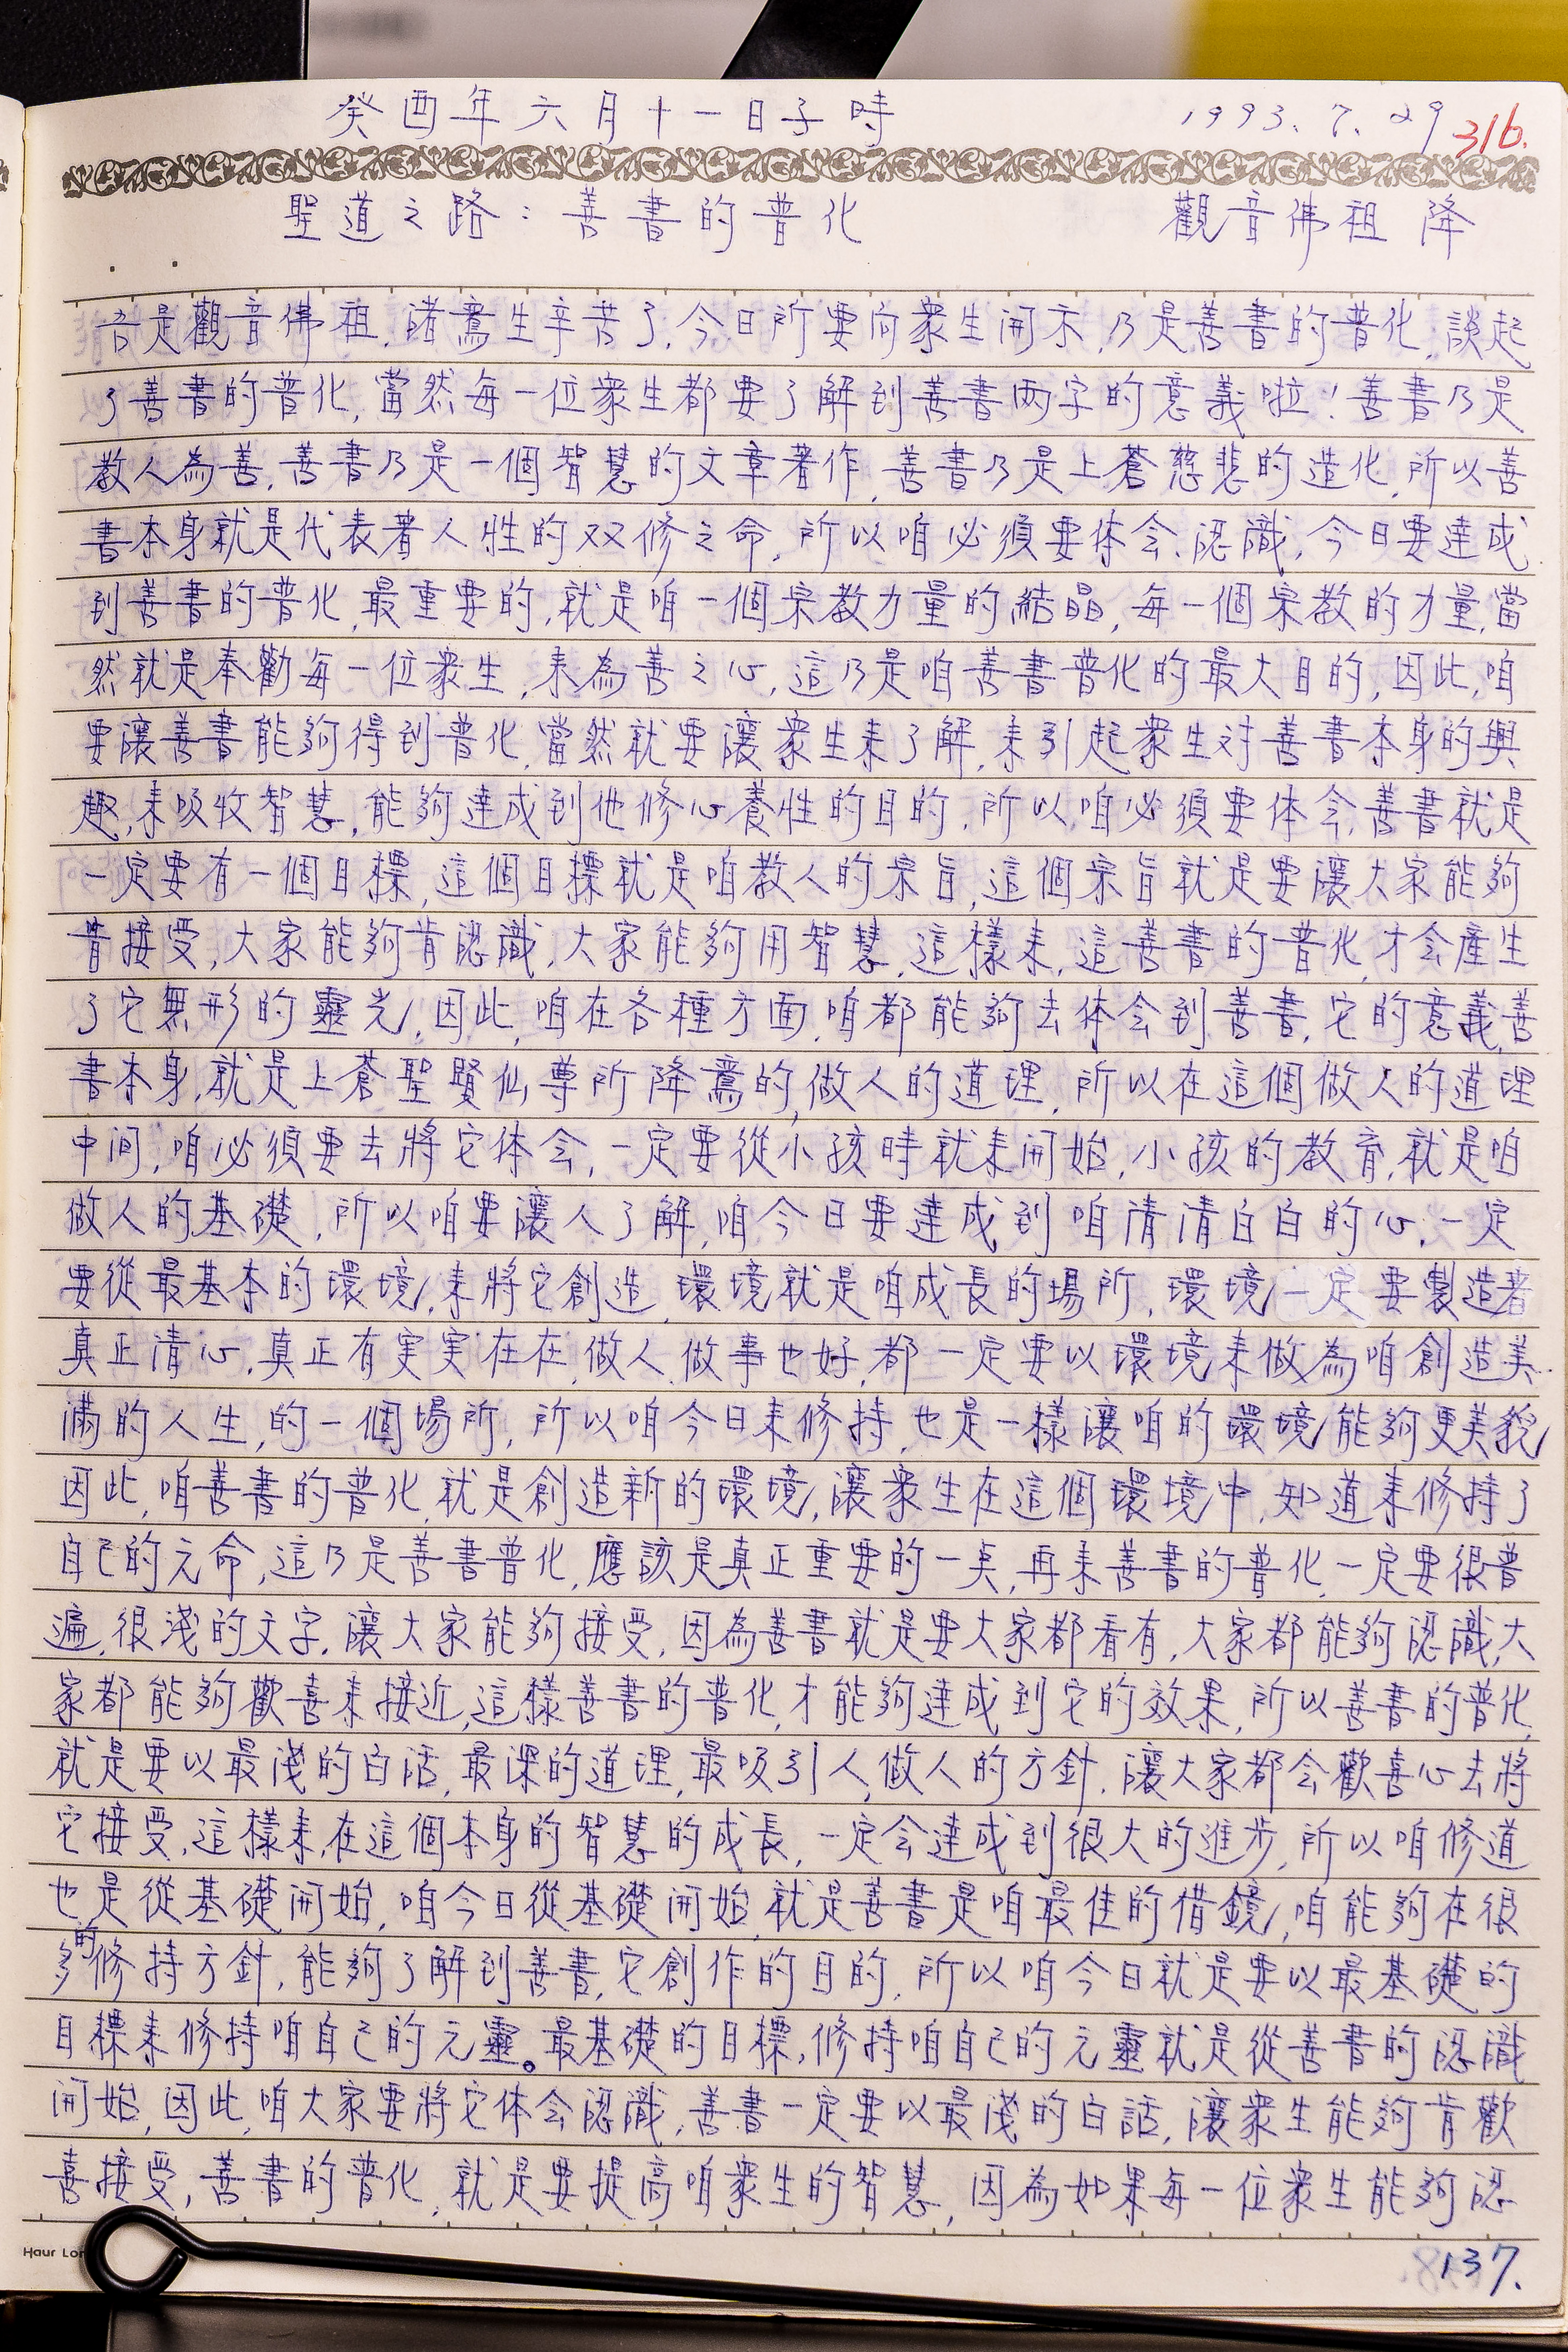 癸酉年六月十一日子時 1993.7.29 316.
聖道之路：善書的普化 觀音佛祖 降
吾是觀音佛祖,諸鸞生辛苦了,今日所要向衆生開示,乃是善書的普化,談起
了善書的普化,當然每一位衆生都要了解到善書两字的意義啦!善書乃是
教人為善,善書乃是一個智慧的文章著作,善書乃是上蒼慈悲的造化,所以善
書本身就是代表著人性的双修之命,所以咱必須要体会、認識,今日要達成
到善書的普化,最重要的,就是咱一個宗教力量的結晶,每一個宗教的力量,當
然就是奉勸每一位衆生,来為善之心,這乃是咱善書普化的最大目的,因此,咱
要讓善書能夠得到普化,當然就要讓衆生来了解,来引起衆生对善書本身的興
趣,来吸收智慧,能夠達成到他修心養性的目的,所以,咱必須要体会,善書就是
一定要有一個目標,這個目標就是咱教人的宗旨,這個宗旨就是要讓大家能夠
肯接受,大家能夠肯認識,大家能夠用智慧,這樣来,這善書的普化,才会產生
了它無形的靈光,因此,咱在各種方面,咱都能夠去体会到善書,它的意義,善
書本身,就是上蒼聖賢仙尊所降鸞的,做人的道理,所以在這個做人的道理
中间,咱必須要去將它体会,一定要從小孩時就来開始,小孩的教育,就是咱
做人的基礎,所以咱要讓人了解,咱今日要達成到咱清清白白的心,一定
要從最基本的環境,来將它創造,環境就是咱成長的場所,環境一定要製造著
真正清心,真正有実実在在,做人、做事也好,都一定要以環境来做為咱創造美
滿的人生,的一個場所,所以咱今日来修持,也是一樣讓咱的環境能夠更美貌
因此,咱善書的普化,就是創造新的環境,讓衆生在這個環境中,知道来修持了
自己的元命,這乃是善書普化,應該是真正重要的一点,再来善書的普化,一定要很普
遍,很淺的文字,讓大家能夠接受,因為善書就是要大家都看有,大家都能夠認識,大
家都能夠歡喜来接近,這樣善書的普化,才能夠達成到它的效果,所以善書的普化,
就是要以最淺的白話,最深的道理,最吸引人,做人的方針,讓大家都会歡喜心去將
它接受,這樣来,在這個本身的智慧的成長,一定会達成到很大的進步,所以咱修道
也是從基礎開始,咱今日從基礎開始,就是善書是咱最佳的借鏡,咱能夠在很
多的修持方針,能夠了解到善書,它創作的目的,所以咱今日就是要以最基礎的
目標来修持咱自己的元靈。最基礎的目標,修持咱自己的元靈就是從善書的認識
開始,因此,咱大家要將它体会認識,善書一定要以最淺的白話,讓衆生能夠肯歡
喜接受,善書的普化,就是要提高咱衆生的智慧,因為如果每一位衆生能夠認
137.